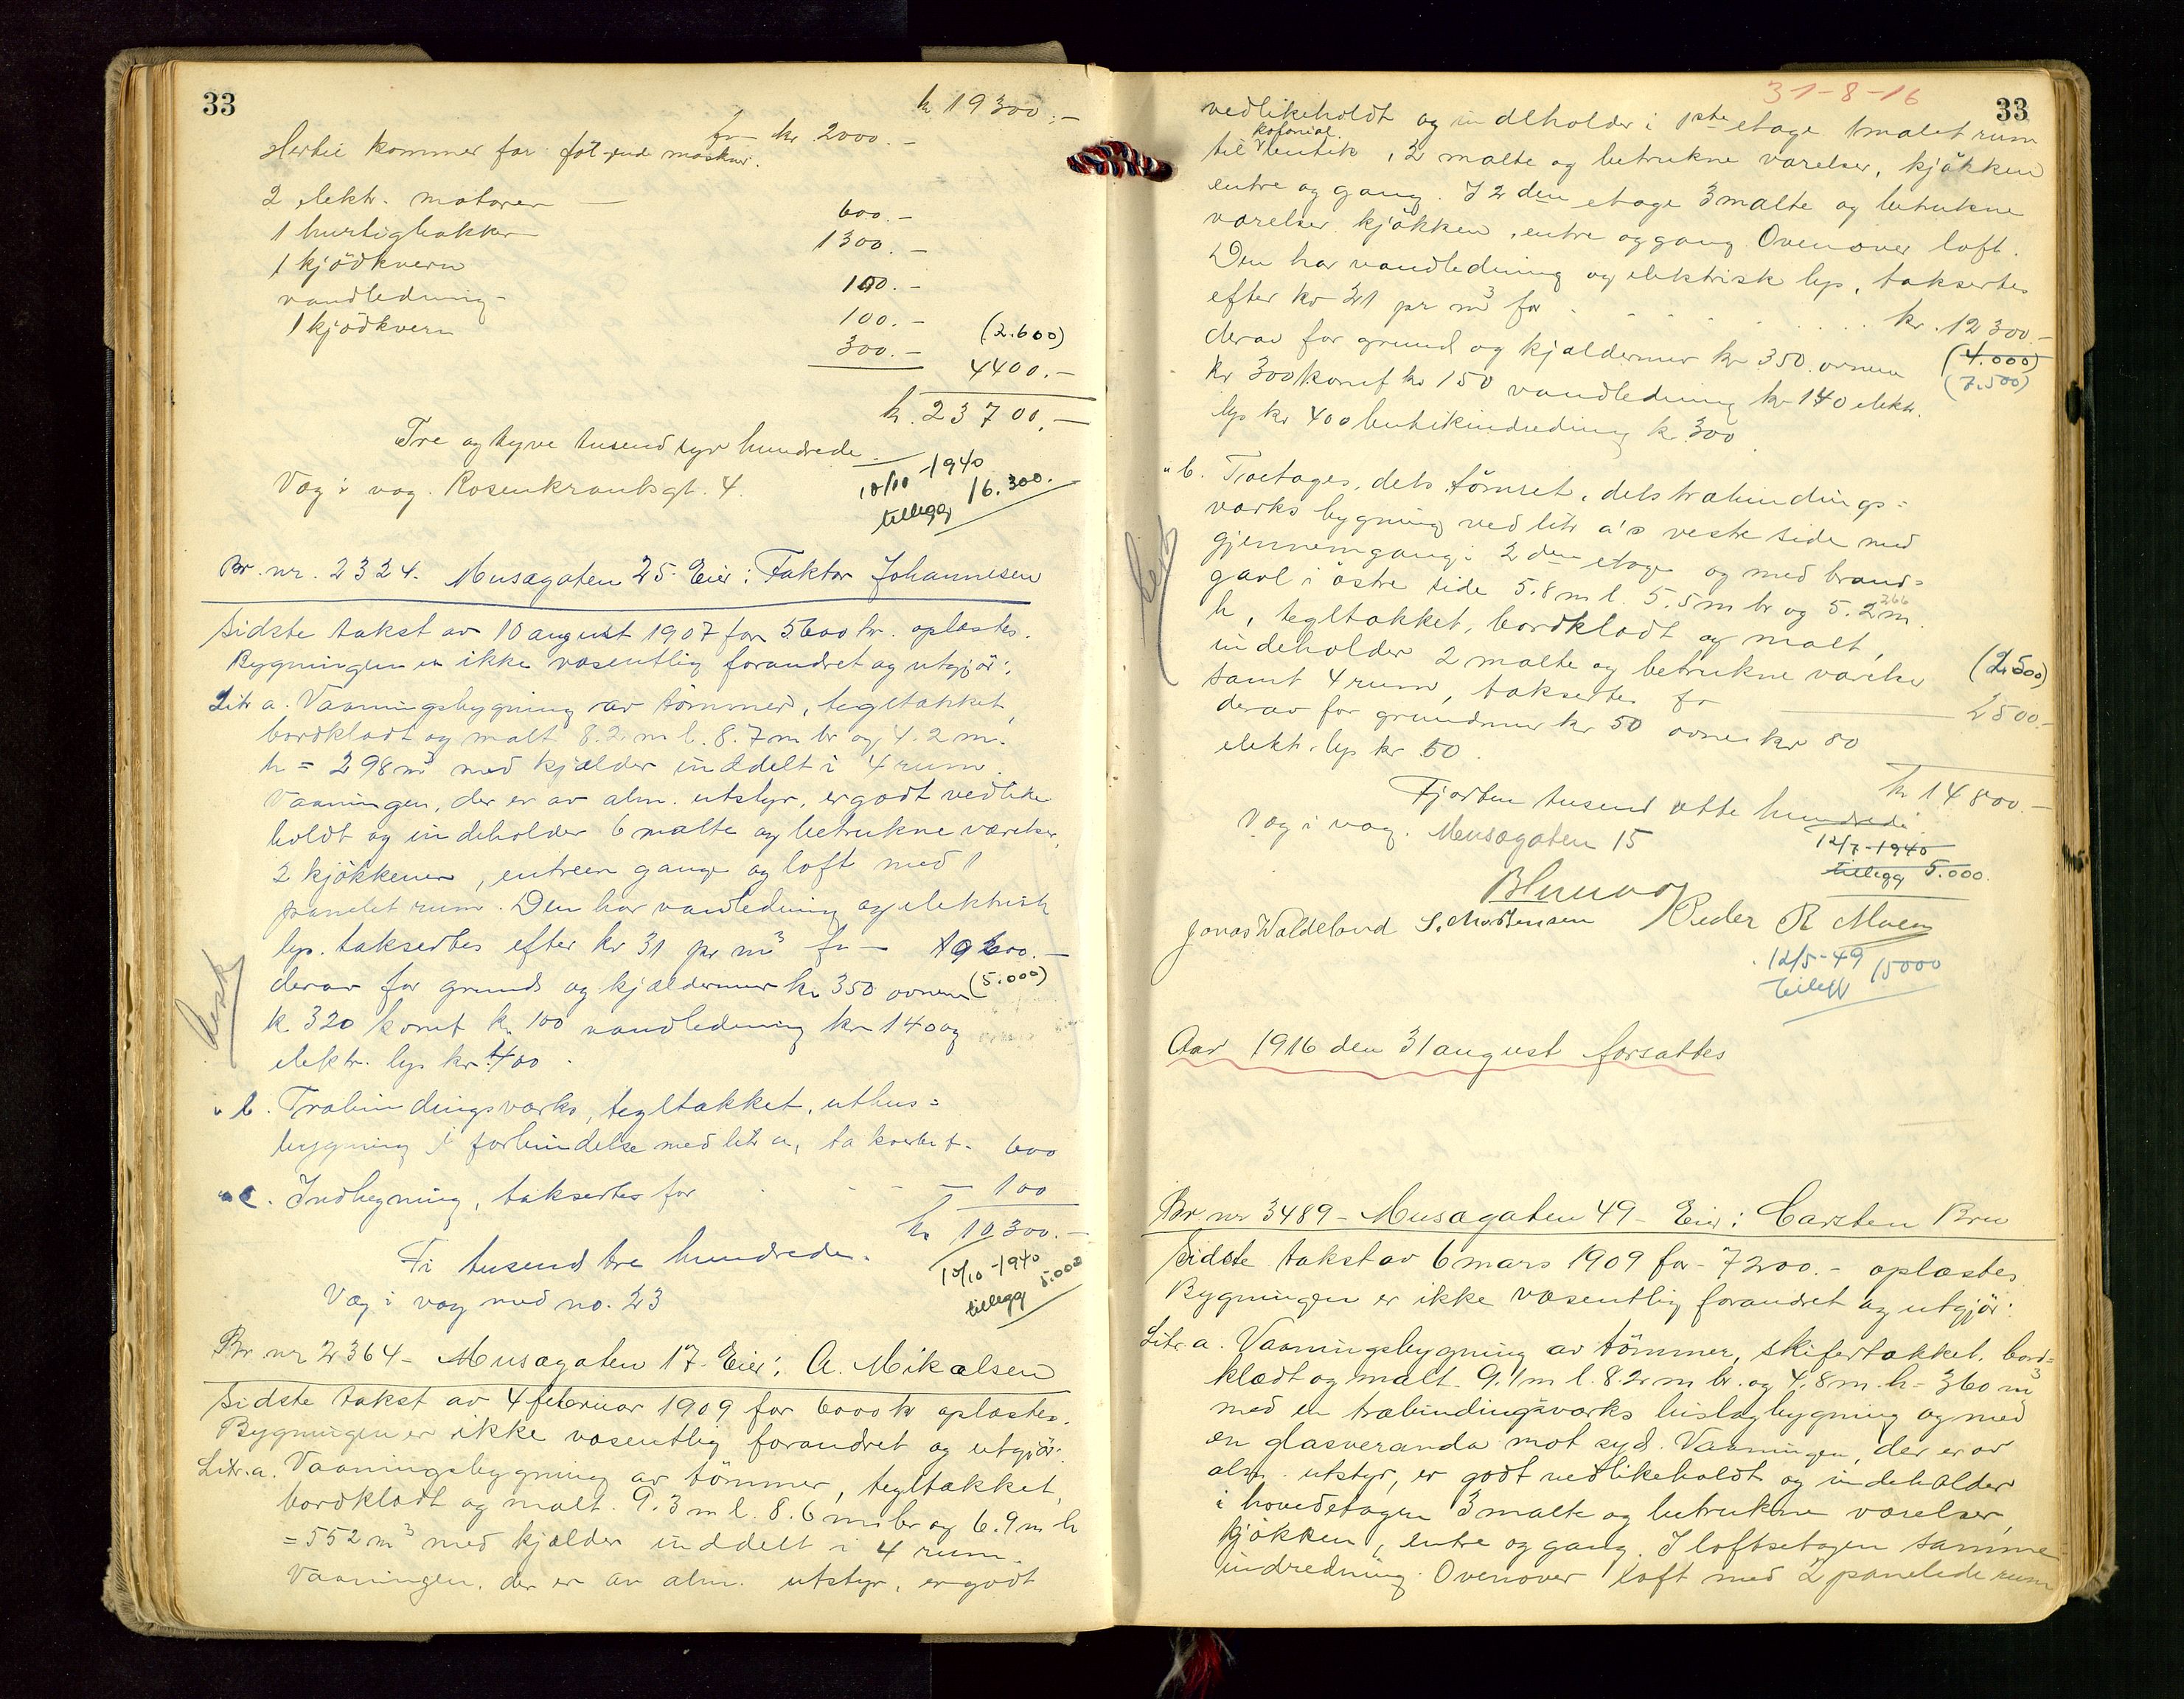 33
kr 19300.-
Hertil kommer for følgende maskiner.
for kr 2000.-
2 elektr. motorer — 600.-
1 hurtighakker 1300.-
1 kjödkvern 100.-
vandledning - 100.-
1 kjödkvern 300.- (2.600)
4400.-
kr. 23700.-
Tre og tyve tusend syv hundrede.
Væg i væg. Rosenkrantzgt. 4.
10/10-1940
tillegg 16.300.
Br. nr. 2324. Musægaten 25. Eier: Faktor Johannesen
Sidste takst av 10 august 1907 for 5600 kr. oplæstes.
Bygningen er ikke væsentlig forandret og utgjör:
Litr a. Vaaningsbygning av tömmer, tegltækket,
bordklædt og malt 8.2 m l. 8.7 m br og 4.2 m.
h = 298 m³ med kjælder inddelt i 4 rum.
Vaaningen, der er av alm. utstyr, er godt vedlike
holdt og indeholder 6 malte og betrukne værelser,
2 kjökkener, entreer gange og loft med 1
panelet rum. Den har vandledning og elektrisk
lys. taksertes efter kr 31 pr m³ for — 10600.-
derav for grund og kjældermur kr 350 ovner (5.000)
kr 320 komf kr 100 vandledning kr 140 og
elektr. lys kr 400.
" b. Træbindingsværks, tegltækket, uthus=
bygning i forbindelse med litr a, taksertes f. 600
" c. Indhegning, taksertes for - - - 100
kr 10300.-
Ti tusend tre hundrede.
Væg i væg med no. 23
10/10-1940
tillegg 5.000
Br nr 2364 - Musægaten 17 - Eier: A. Mikalsen
Sidste takst av 4 februar 1909 for 6000 kr oplæstes.
Bygningen er ikke væsentlig forandret og utgjör:
Litr. a. Vaaningsbygning av tömmer, tegltækket,
bordklædt og malt. 9.3 m l. 8.6 m br og 6.9 m h
= 552 m³ med kjælder inddelt i 4 rum.
Vaaningen, der er av alm. utstyr, er godt
31-8-16
33
vedlikeholdt og indeholder i 1ste etage 1 malet rum
til kolonial butik, 2 malte og betrukne værelser, kjökken
entre og gang. I 2den etage 3 malte og betrukne
værelser, kjökken, entre og gang. Ovenover loft.
Den har vandledning og elektrisk lys, taksertes
efter kr 21 pr m³ for . . . . . . . kr. 12300.-
derav for grund og kjældermur kr 350. ovner (4.000)
kr 300 komf kr 150 vandledning kr 140 elektr. (7.500)
lys kr 400 butikindredning kr 300
" b. Toetages, dels tömret, dels træbindings=
værks bygning ved litr a's vestre side med
gjennemgang i 2den etage og med brand=
gavl i östre side 5.8 m l. 5.5 m br og 5.2 m.
h, tegltækket, bordklædt og malt,
indeholder 2 malte og betrukne værelser (2.500)
samt 4 rum, taksertes for — 2500.-
derav for grundmur kr 50 ovner kr 80
elektr. lys kr 50.
kr 14800.-
Fjorten tusend otte hundrede.
Væg i væg. Musægaten 15
12/7-1940
tillegg 5.000.
Jonas Waldeland S. Mortensen Peder R Moen
12/5-49
tillegg 15000
Aar 1916 den 31 august forsattes
Br nr 3489 - Musægaten 49 - Eier: Carsten Bru
Sidste takst av 6 mars 1909 for - 7200.- oplæstes
Bygningen er ikke væsentlig forandret og utgjör:
Litr. a. Vaaningsbygning av tömmer, skifertækket, bord=
klædt og malt. 9.1 m l. 8.2 m br. og 4.8 m. h = 360 m³
med en træbindingsværks bislagbygning og med
en glasveranda mot syd. Vaaningen, der er av
alm. utstyr, er godt vedlikeholdt og indeholder
i hovedetagen 3 malte og betrukne værelser,
kjökken, entre og gang. I loftsetagen samme
indredning. Ovenover loft med 2 panelede rum